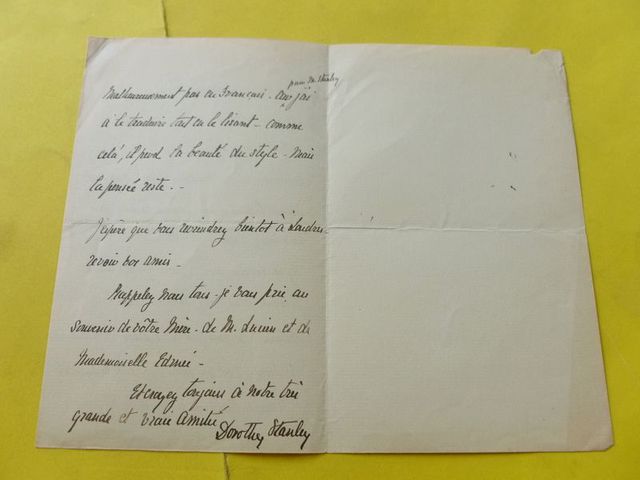 pour M. Stanley
Malheureusement pas en Français - Car j'ai
à le traduire tout en le lisant - comme
celà, il perd la beauté du style - Mais
la pensée reste. -
J'espère que vous reviendrez bientôt à Londres
revoir vos amis -
Rappelez nous tous - je vous prie, au
souvenir de vôtre Mère - de M. Lucien et de
Mademoiselle Edmée -
Et croyez toujours à notre très
grande et vraie Amitié
Dorothy Stanley